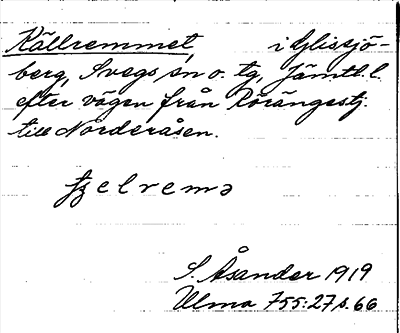 Källremmet, i Glissjö-
berg, Svegs sn o. tg, Jämtl. l.
efter vägen från Rörängestj.
till Norderåsen.
S. Åsander 1919
Ulma 755:27 s. 66